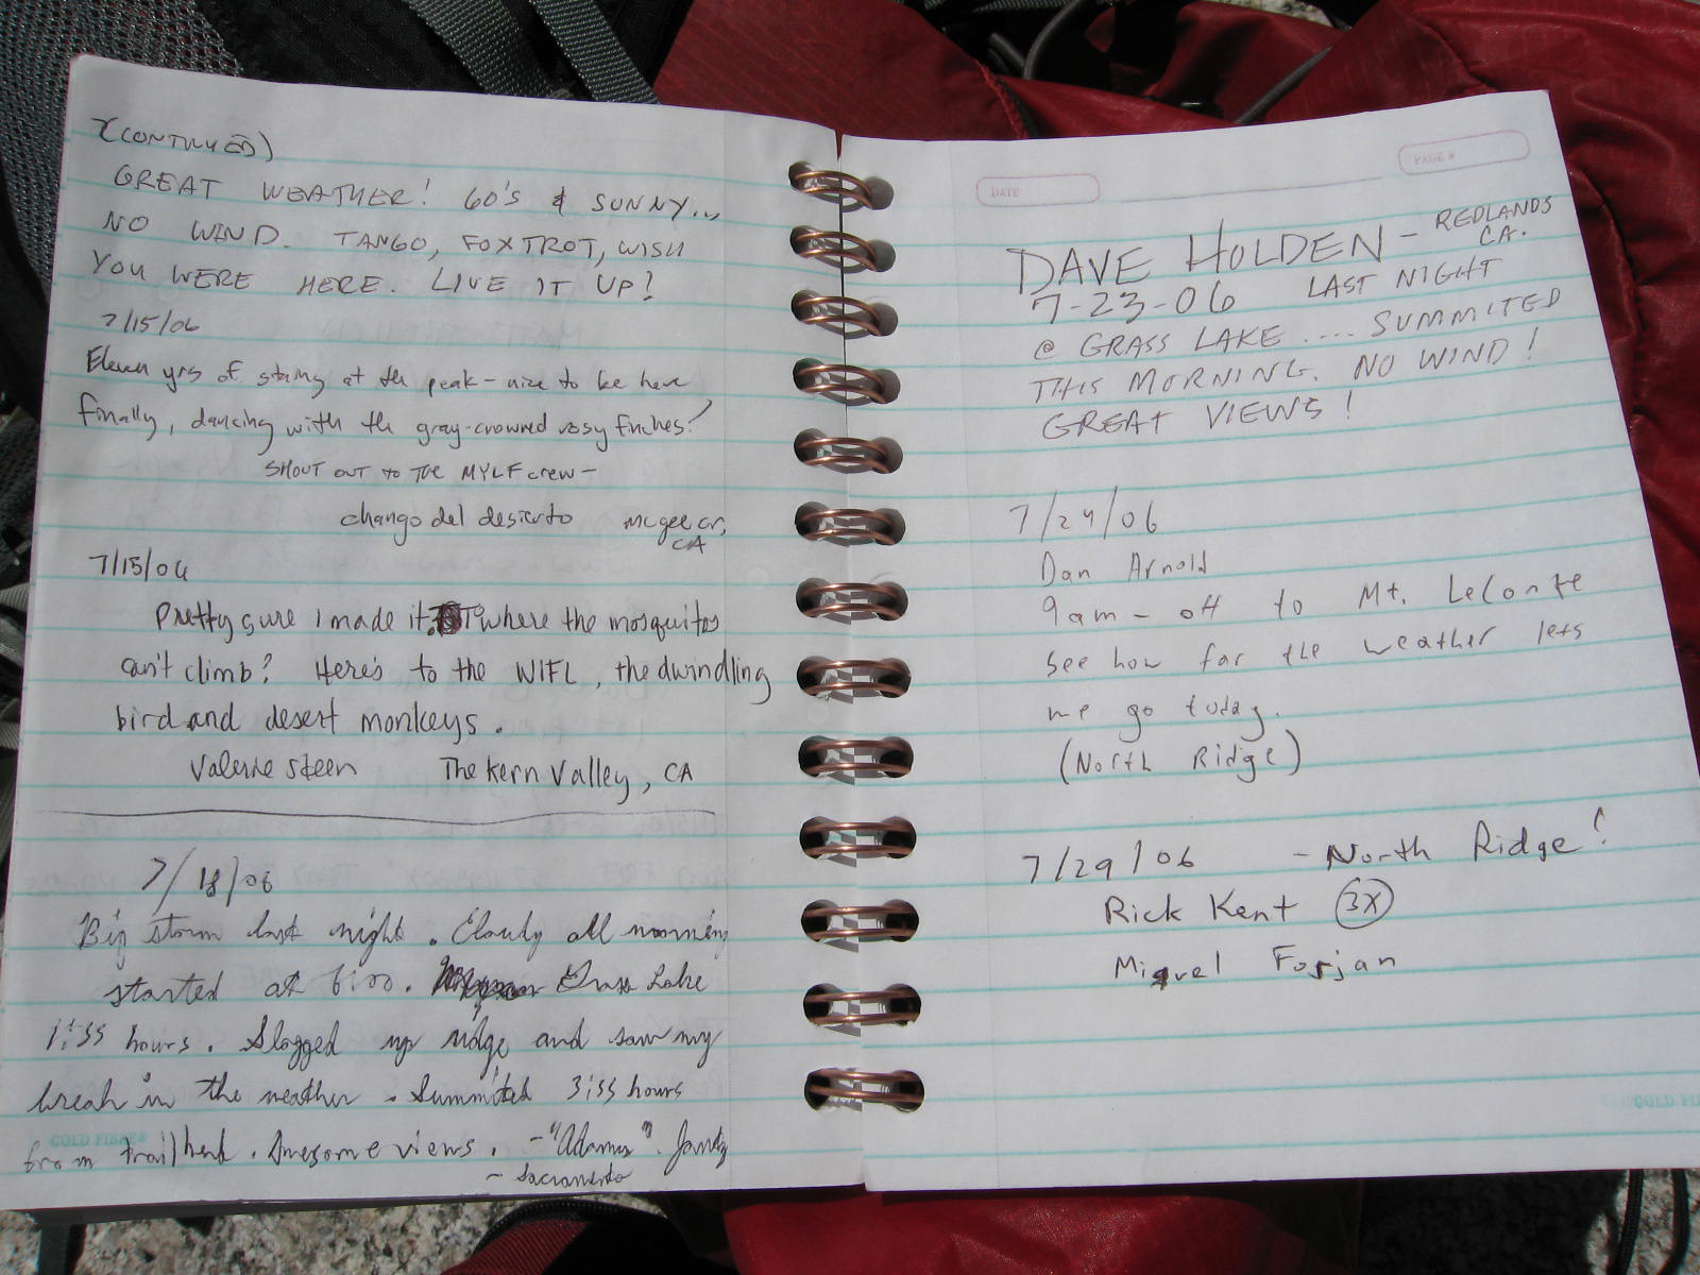 (CONTINUED)
GREAT WEATHER! 60'S & SUNNY...
NO WIND. TANGO, FOXTROT, WISH
YOU WERE HERE. LIVE IT UP!
7/15/06
Eleven yrs of staring at the peak - nice to be here
finally, dancing with the gray-crowned rosy finches!
SHOUT OUT to THE MYLF crew -
chango del desierto mcgee cr,
CA
7/15/06
Pretty sure I made it. where the mosquitos
can't climb? Here's to the WIFL, the dwindling
bird and desert monkeys.
Valerie Steen The Kern Valley, CA
7/18/06
Big storm last night. Cloudy all morning
started at 6:00. Grass Lake
1:55 hours. Slogged up ridge and saw my
break in the weather. Summited 3:55 hours
from trailhead. Awesome views. -"Adamus"
- Sacramento
GOLD FIBRE
DATE
PAGE #
DAVE HOLDEN - REDLANDS
CA.
7-23-06 LAST NIGHT
@ GRASS LAKE .... SUMMITED
THIS MORNING. NO WIND!
GREAT VIEWS!
7/24/06
Dan Arnold
9am - off to Mt. LeConte
see how far the weather lets
me go today.
(North Ridge)
7/29/06 - North Ridge!
Rick Kent 3X
Miguel Forjan